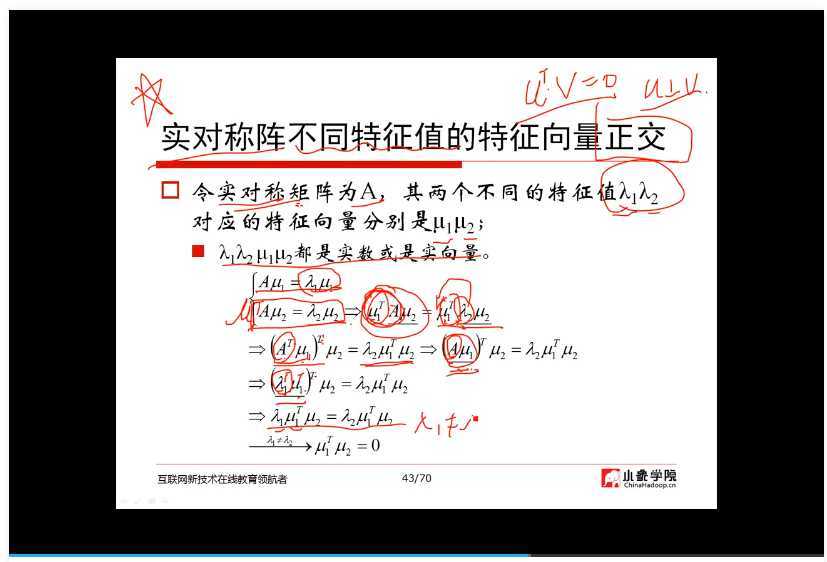 uᵀ·V=0 u⊥v.
实对称阵不同特征值的特征向量正交
令实对称矩阵为A，其两个不同的特征值λ₁λ₂
对应的特征向量分别是μ₁μ₂；
λ₁λ₂μ₁μ₂都是实数或是实向量。
Aμ₁ = λ₁μ₁
Aμ₂ = λ₂μ₂ ⇒ μ₁ᵀAμ₂ = μ₁ᵀλ₂μ₂
⇒ (Aᵀμ₁)ᵀμ₂ = λ₂μ₁ᵀμ₂ ⇒ (Aμ₁)ᵀμ₂ = λ₂μ₁ᵀμ₂
⇒ (λ₁μ₁)ᵀμ₂ = λ₂μ₁ᵀμ₂
⇒ λ₁μ₁ᵀμ₂ = λ₂μ₁ᵀμ₂ λ₁≠
λ₁≠λ₂ → μ₁ᵀμ₂ = 0
互联网新技术在线教育领航者 43/70 小象学院
ChinaHadoop.cn